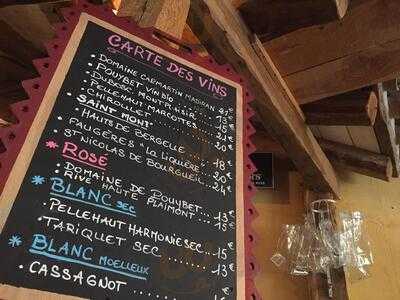 CARTE DES VINS
• DOMAINE CAPMARTIN MADIRAN 21€
• POUYBET VIN BIO
• DUBOSC MONT P.HSIR
• PELLEHAUT MARCOTTES 13€
• CHIROULET
SAINT MONT
• HAUTS DE BERGELLE
• FAUGÈRES "LA LIQUIÈRE" 18€
• ST NICOLAS DE BOURGUEIL 20€
24€
* ROSÉ
• DOMAINE DE POUYBET
RIVE HAUTE PLAIMONT 13€
* BLANC SEC 15€
• PELLEHAUT HARMONIE SEC 15€
• TARIQUET SEC 13€
* BLANC MOELLEUX
• CASSAGNOT